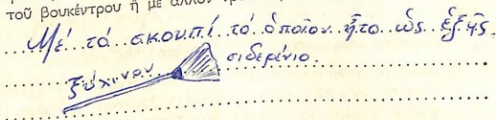 τοῦ βουκέντρου ἤ μέ ἄλλον
Μέ τό σκουπί τό ὁποῖον ἦτο ὡς ἑξῆς.
ξύλινον σιδερένιο